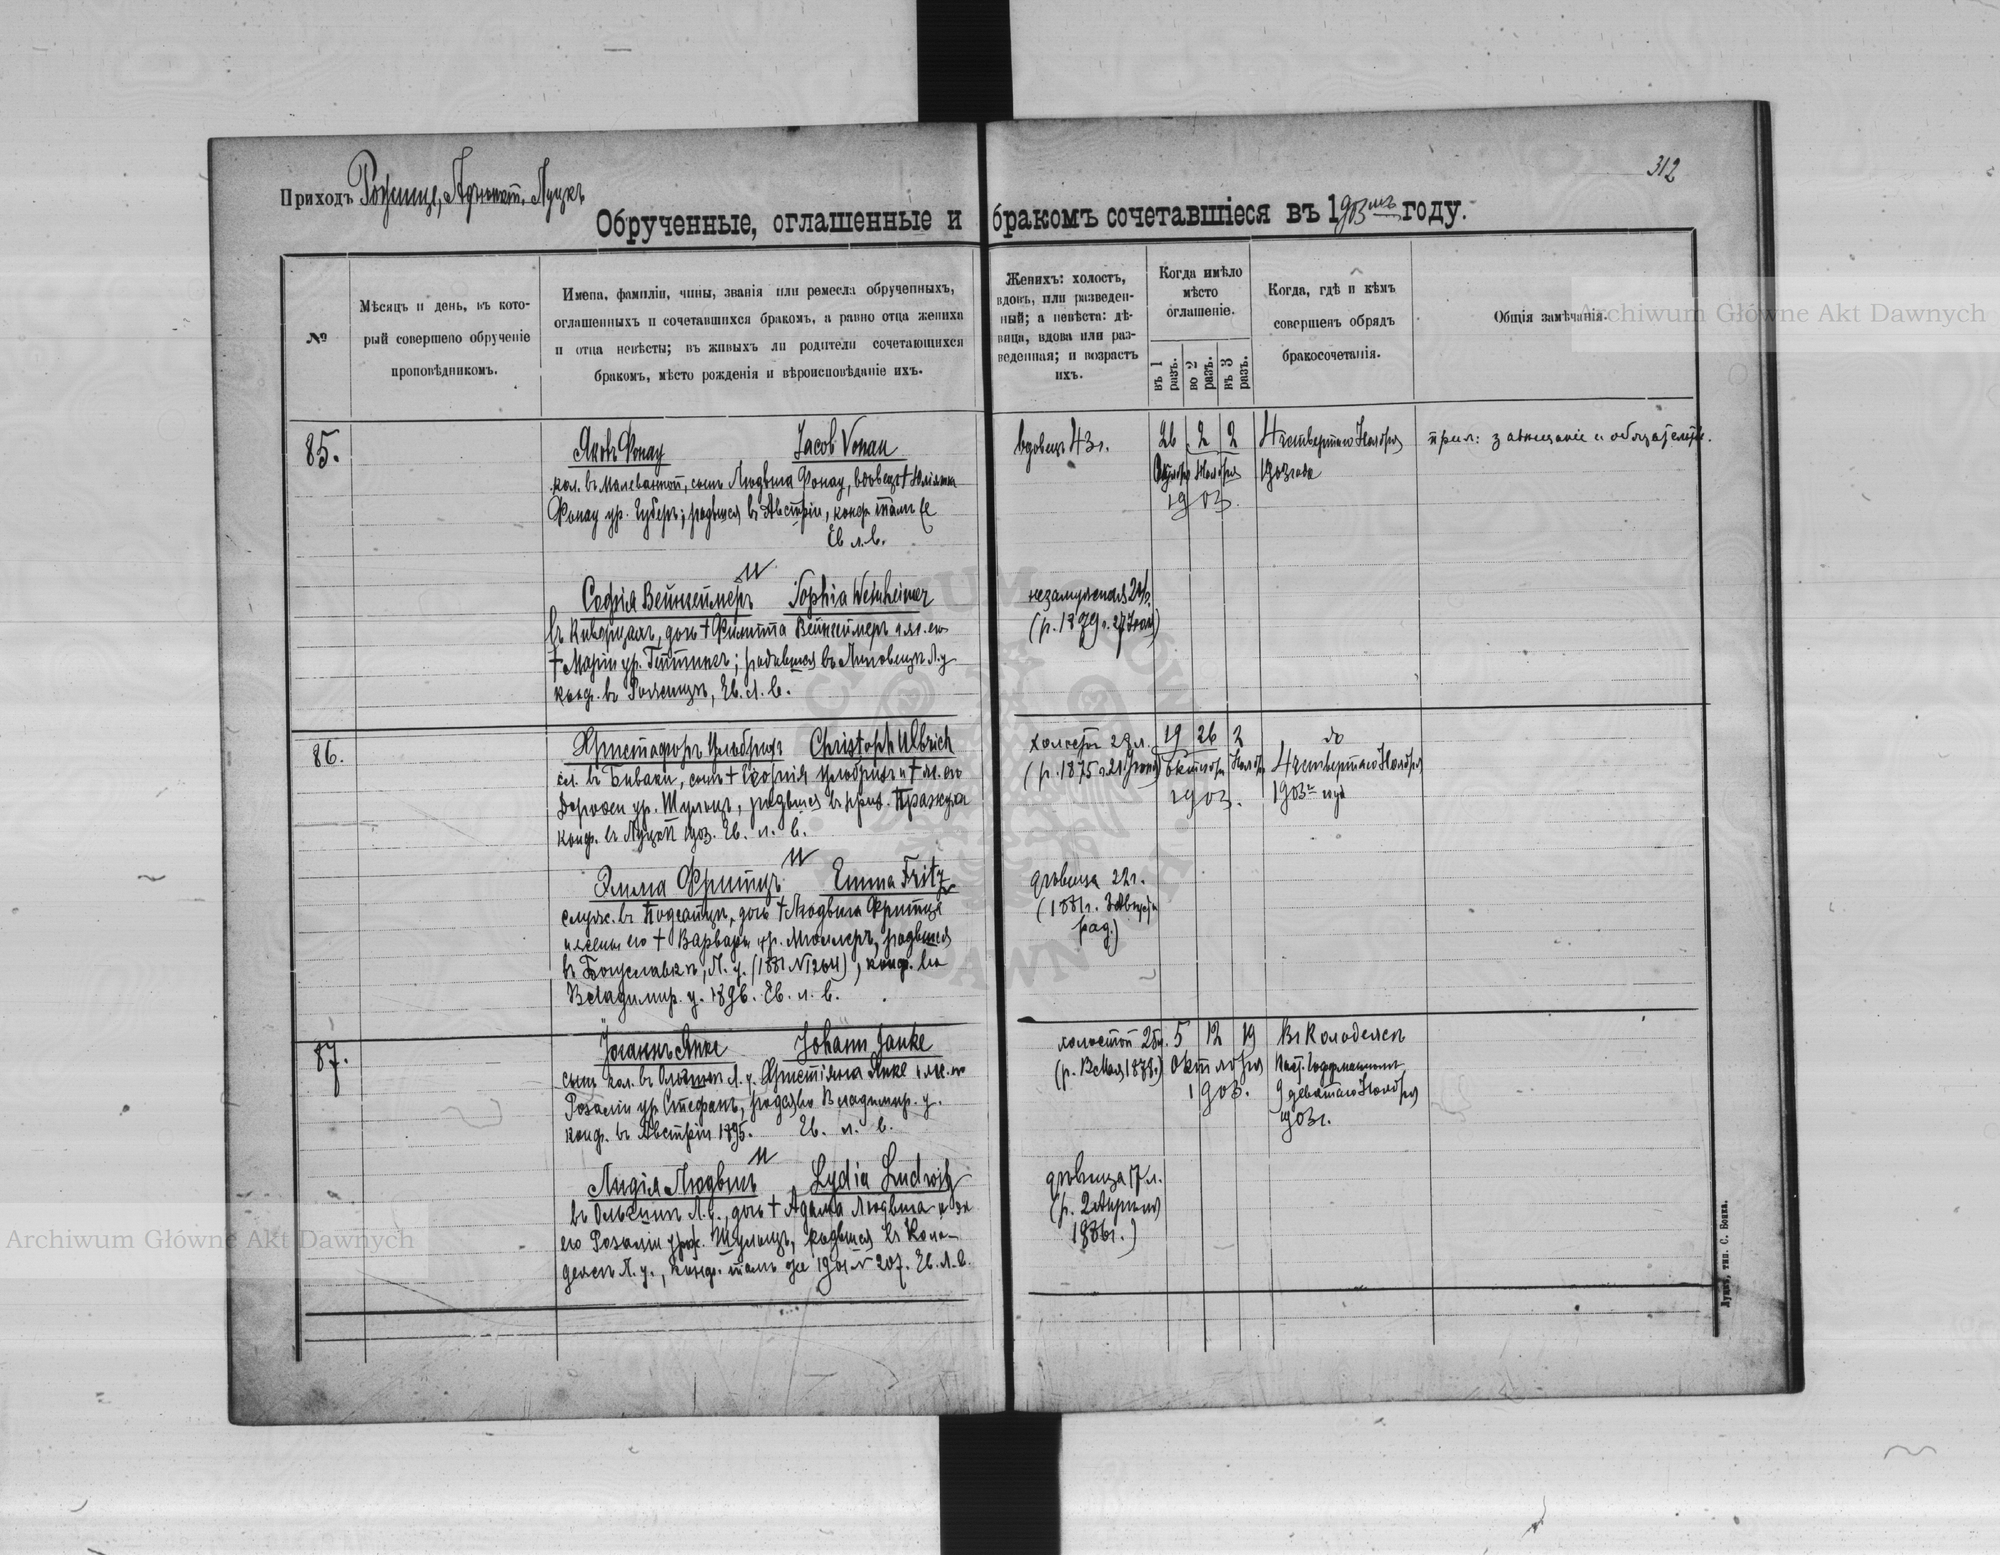 312
Приходъ Рожище, Адъюнкт. Луцкъ
Обрученные, оглашенные и бракомъ сочетавшіеся въ 1903мъ году.
№
Мѣсяцъ и день, въ кото-
рый совершено обрученіе
проповѣдникомъ.
Имена, фамиліи, чины, званія или ремесла обрученныхъ,
оглашенныхъ и сочетавшихся бракомъ, а равно отца жениха
и отца невѣсты; въ живыхъ ли родители сочетающихся
бракомъ, мѣсто рожденія и вѣроисповѣданіе ихъ.
Женихъ: холостъ,
вдовъ, или разведен-
ный; а невѣста: дѣ-
вица, вдова или раз-
веденная; и возрастъ
ихъ.
Когда имѣло
мѣсто
оглашеніе.
въ 1 разъ.
во 2 разъ.
въ 3 разъ.
Когда, гдѣ и кѣмъ
совершенъ обрядъ
бракосочетанія.
Общія замѣчанія.
85.
Яковъ Фонау Jacob Vonau
кол. въ Малеванной, сынъ Людвига Фонау, вдовецъ †
Фонау ур. Губеръ; родився въ Австріи, конф. тамъ
Ев. л. в.
и
Софія Вейнгеймеръ Sophia Weinheimer
въ Киверцахъ, дочь † Филиппа Вейнгеймеръ и ж. его
† Маріи ур. ; родившася въ Липовецъ Л. у.
конф. въ Рожищѣ, Ев. л. в.
вдовецъ 43 г.
26 2 2
Октября Ноября
1903.
4 четвертаго Ноября
1903 года
прил: завѣщаніе и
незамужняя 24 г.
(р. 1879 г. 27 )
86.
Христофоръ Ульбрихъ Christoph Ulbrich
сл. въ , сынъ † Ульбрихъ и † ж. его
Доротеи ур. Шульцъ, родився въ
конф. въ Луцкѣ 1903. Ев. л. в.
и
Эмма Фритцъ Emma Fritz
служ. въ , дочь † Людвига Фритца
и жены его † Варвары ур. Миллеръ, родився
въ Богуславкѣ, Л. у. (1881 № 264), конф. во
Владимир. у. 1896. Ев. л. в.
холостъ 28 л.
(р. 1875 г. 21 )
19 26 2
октября Ноября
1903.
до
4 четвертаго Ноября
1903 года
дѣвица 22 г.
(1881 г. 3 Августа
род.)
87.
Іоганнъ Янке Johann Janke
сынъ кол. въ Л. у. Христіана Янке и ж. его
Розаліи ур. Стефанъ, родся во Владимир. у.
конф. въ Австріи 1895. Ев. л. в.
и
Лидія Людвигъ Lydia Ludwig
въ Л. у., дочь † Адама Людвига и
его Розаліи урж. Шульцъ, родився въ Коло-
дежѣ Л. у., конф. тамъ же 1901 № 207. Ев. л. в.
холостой 25 л.
(р. Мая 1878.)
5 12 19
Октября
1903.
въ Колодежѣ
Паст.
9 девятаго Ноября
1903 г.
дѣвица 17 л.
(р. 2
1886 г.)
Луцкъ, тип. С. Бонка.
Archiwum Główne Akt Dawnych
Archiwum Główne Akt Dawnych